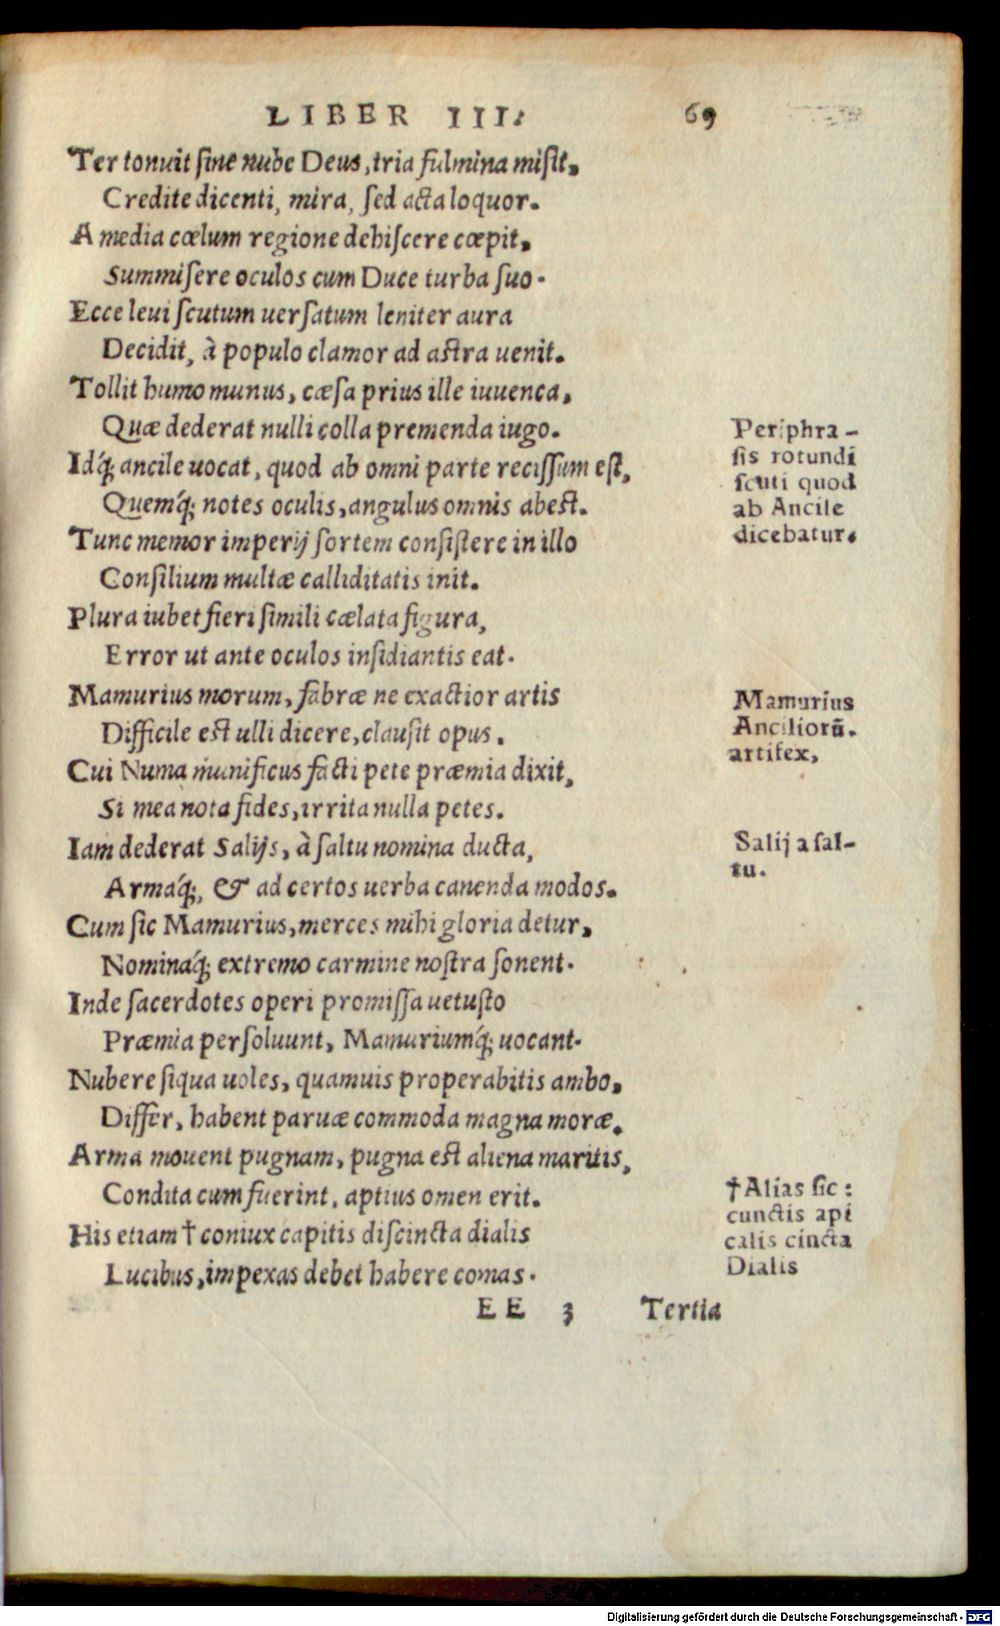 LIBER III.
69
Ter tonuit sine nube Deus, tria fulmina misit,
Credite dicenti, mira, sed acta loquor.
A media cœlum regione dehiscere cœpit,
Summisere oculos cum Duce turba suo.
Ecce leui scutum uersatum leniter aura
Decidit, à populo clamor ad astra uenit.
Tollit humo munus, cæsa prius ille iuuenca,
Quæ dederat nulli colla premenda iugo.
Idq́; ancile uocat, quod ab omni parte recissum est,
Quemq́; notes oculis, angulus omnis abest.
Tunc memor imperij sortem consistere in illo
Consilium multæ calliditatis init.
Plura iubet fieri simili cælata figura,
Error ut ante oculos insidiantis eat.
Mamurius morum, fabræ ne exactior artis
Difficile est ulli dicere, clausit opus.
Cui Numa munificus facti pete præmia dixit,
Si mea nota fides, irrita nulla petes.
Iam dederat Salijs, à saltu nomina ducta,
Armaq́;, & ad certos uerba canenda modos.
Cum sic Mamurius, merces mihi gloria detur,
Nominaq́; extremo carmine nostra sonent.
Inde sacerdotes operi promissa uetusto
Præmia persoluunt, Mamuriumq́; uocant.
Nubere siqua uoles, quamuis properabitis ambo,
Differ, habent paruæ commoda magna moræ.
Arma mouent pugnam, pugna est aliena maritis,
Condita cum fuerint, aptius omen erit.
His etiam † coniux capitis discincta dialis
Lucibus, impexas debet habere comas.
EE 3 Tertia
Periphra-
sis rotundi
scuti quod
ab Ancile
dicebatur.
Mamurius
Anciliorū.
artifex,
Salij a sal-
tu.
†Alias sic:
cunctis api
calis cincta
Dialis
Digitalisierung gefördert durch die Deutsche Forschungsgemeinschaft - DFG